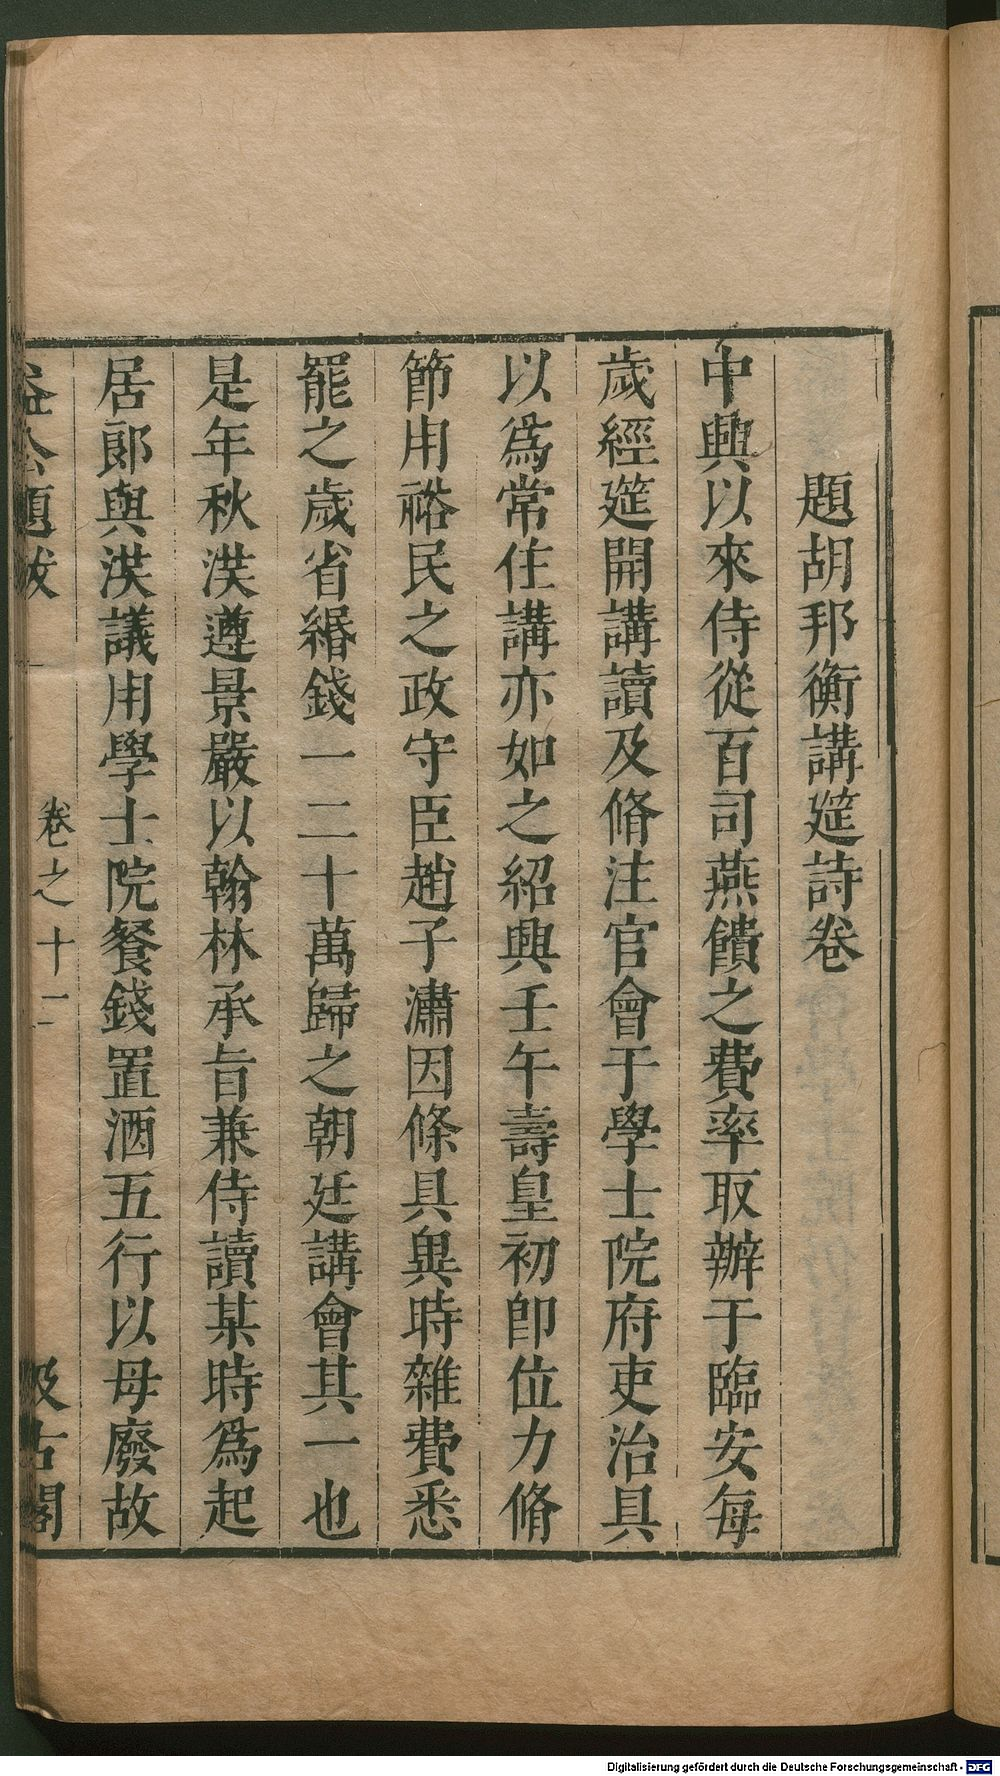 題胡邦衡講筵詩卷
中興以來侍從百司燕饋之費率取辦于臨安每
歲經筵開講讀及脩注官會于學士院府吏治具
以爲常住講亦如之紹興壬午壽皇初卽位力脩
節用裕民之政守臣趙子潚因條具與時雜費悉
罷之歲省緡錢一二十萬歸之朝廷講會其一也
是年秋洪遵景嚴以翰林承旨兼侍讀某時爲起
居郎與洪議用學士院餐錢置酒五行以母廢故
益公題跋
卷之十一
汲古閣
Digitalisierung gefördert durch die Deutsche Forschungsgemeinschaft - DFG